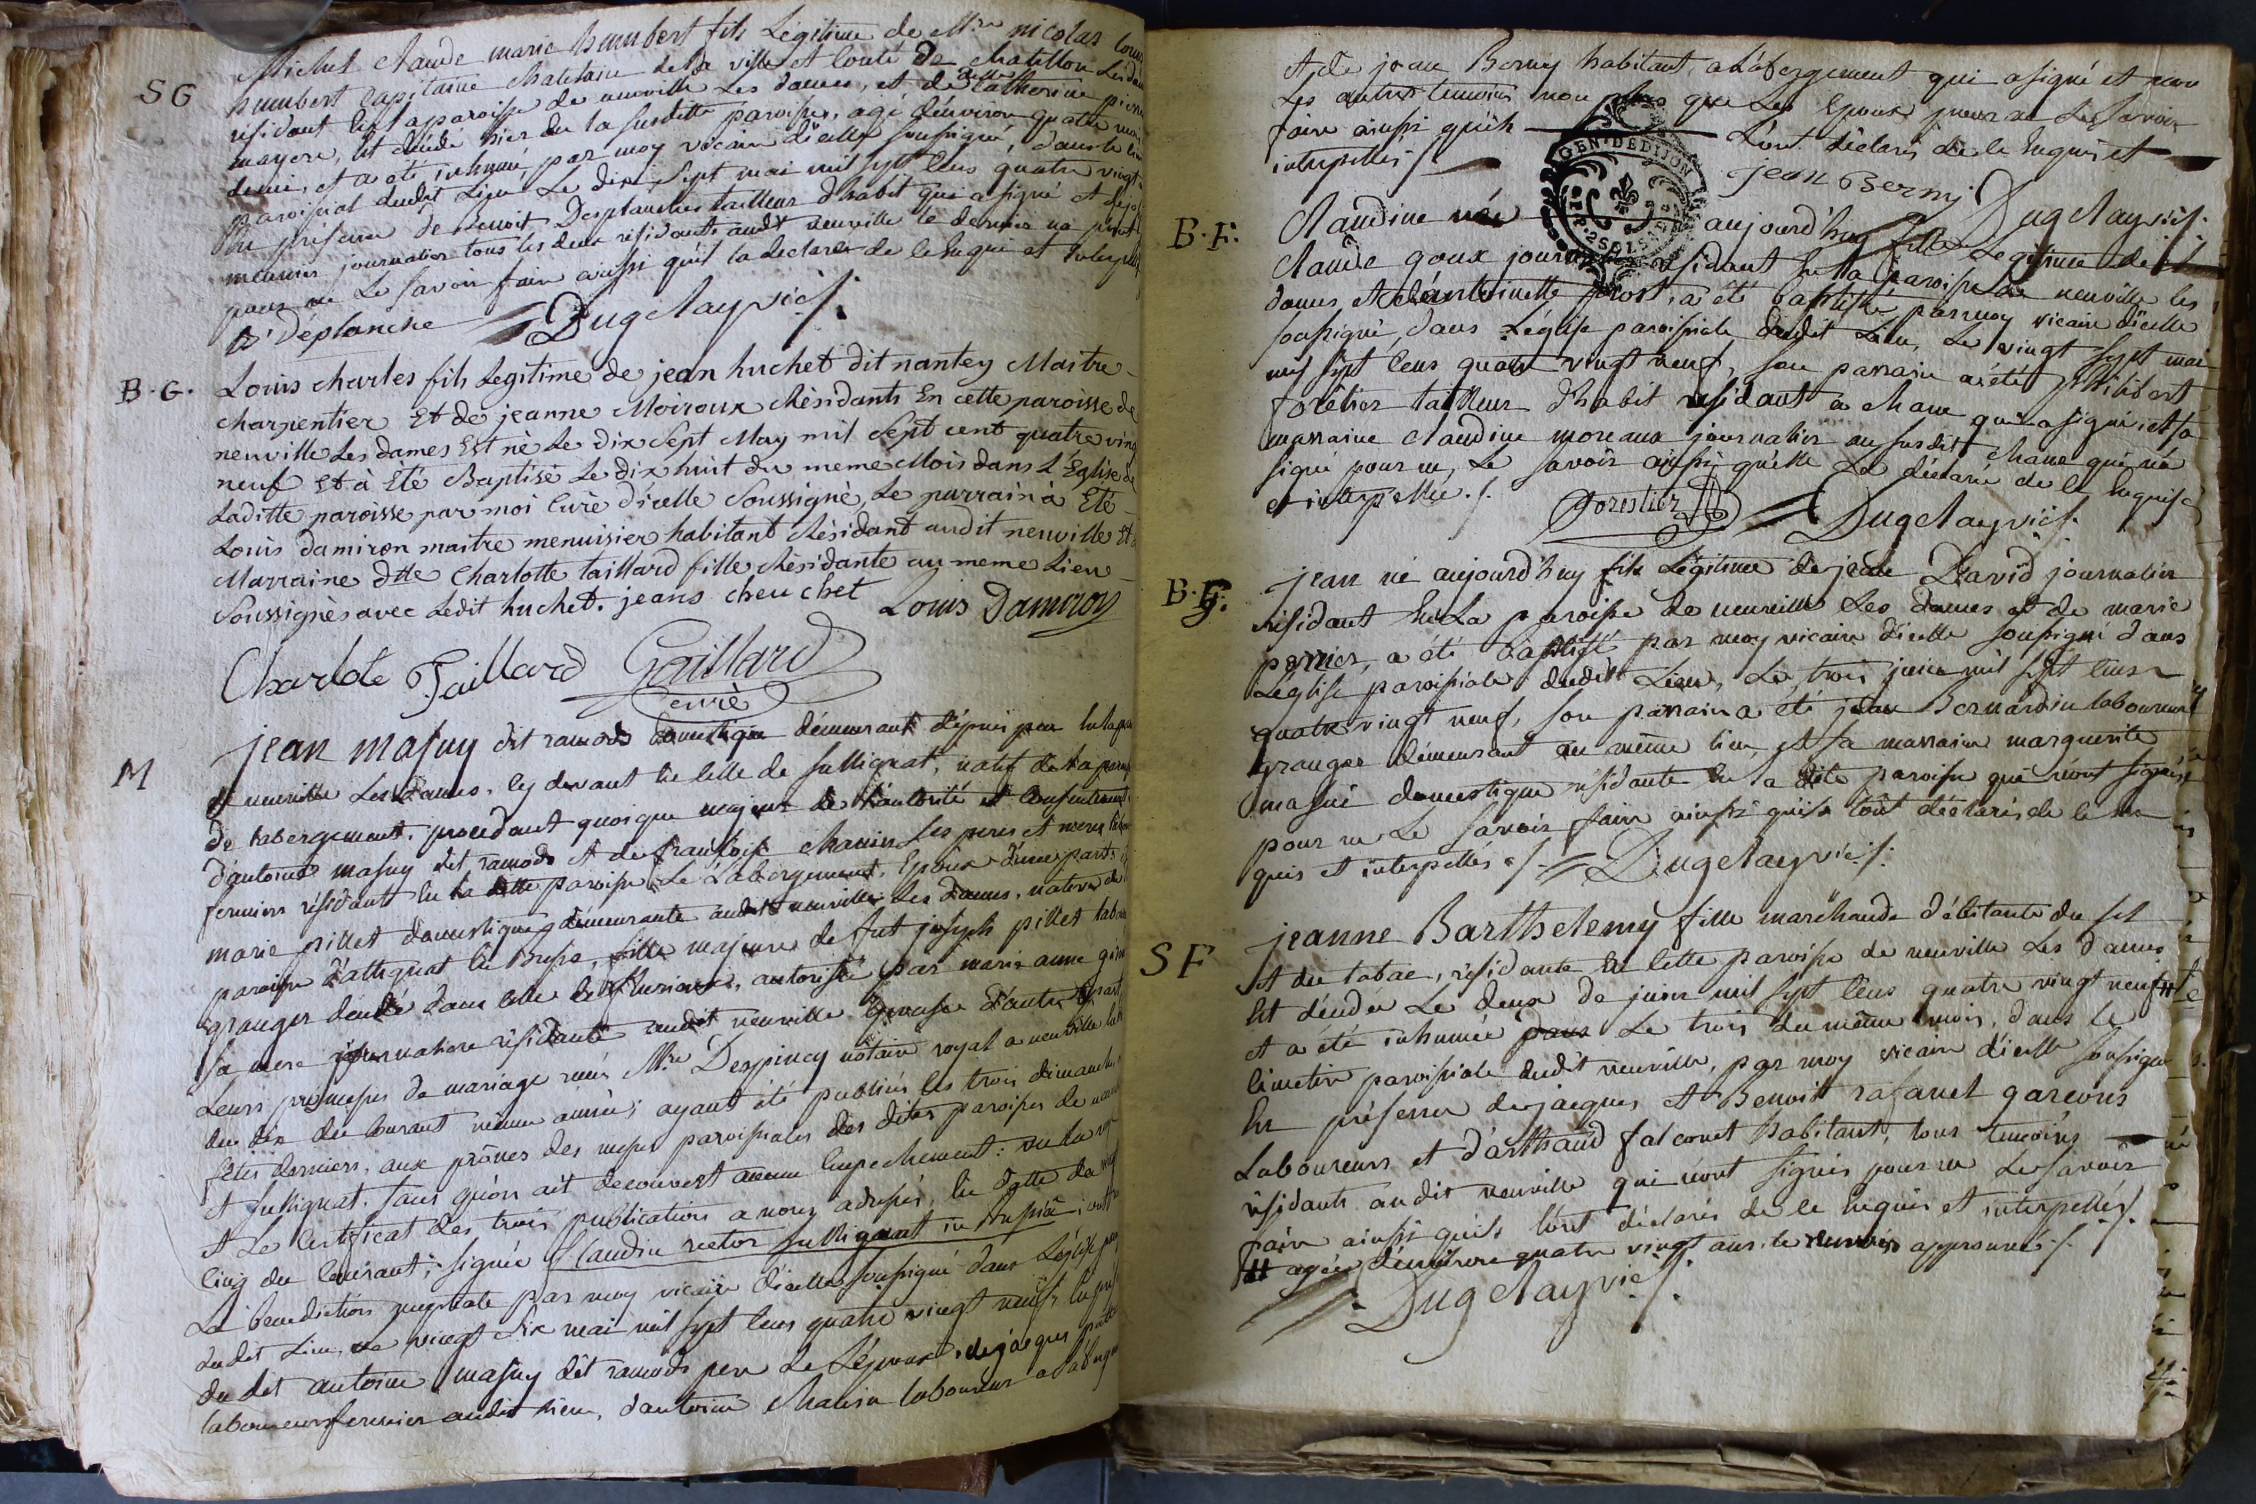 SG
Michel Claude marie humbert fils Légitime de Mre nicolas
humbert Capitaine Chatelain de la ville et Comté de Chatillon Les
résidant En la paroisse de neuville Les dames, et de delle Catherine
mayere, est décédé hier du la susditte paroisse, agé d'environ quatre
demie, et a été inhumé, par moy vicaire d'icelle soussigné, dans le
paroissial dudit Lieu Le dix Sept mai mil sept Cens quatre vingt
En présence de Benoit Desplanches tailleur d'habit qui a signé et de
meunier journalier tous les deux résidants audt neuville le dernier na
pour ne Le savoir faire ainsi qu'il la declaré de ce Enquis et
B' Déplanche Dugelay vic./.
B.G.
Louis charles fils Legitime de jean huchet dit nantey Maitre
charpentier Et de jeanne Moiroux Résidants En cette paroisse de
neuville Les dames Est né Le dix Sept May mil Sept cent quatre ving
neuf Et à Eté Baptisé Le dix huit du meme Mois dans L'Eglise de
Laditte paroisse par moi Curé d'icelle Soussigné, Le parrain à Eté
Louis damiron maitre menuisier habitant Résidant audit neuville Et
Marraine dtte Charlotte taillard fille Résidante au meme Lieu
Soussignés avec Ledit huchet. jeans cheuchet Louis Damiron
Charlote Taillard Gaillard
curé
M
jean masuy dit ramods domestique démeurant dépuis peu En la
de neuville Les dames, Cy devant En Celle de sullignat, natif de la
de labergement, procedant quoique majeur de l'autorité et Consentement
d'antoine masuy dit ramods et de françoise Chanin ses peres et meres
fermiers résidants En la ditte paroisse de Labergement, Epoux d'une part.
marie pillet domestique démeurante audit neuville Les dames, native de
paroisse d'attignat En Bresse, fille majeure de fut joseph pillet
granger décédé dans Celle de fleurieux, autorisée par marie anne
sa mere journaliere résidante audit neuville Epouse d'autre part
Leurs promesses de mariage reçues Mre Despiney notaire royal a neuville
du dix du Courant même année; ayant été publiées les trois dimanches
fêtes derniers, aux prônes des messes paroissiales des dites paroisses de
et sullignat, sans qu'on ait decouvert aucun Empechement: vu
et Le Certificat des trois publications a nous adressé, En datte du
Cinq du Courant; signé Claudin rector sullignati in Bressiâ;
La benediction nuptiale par moy vicaire d'icelle soussigné dans L'église
dudit Lieu, Le vingt six mai mil sept Cens quatre vingt neuf, En
du dit antoine masuy dit ramods pere de L'époux, de jacques
laboureurs fermier audit Lieu, d'antoine Chanin laboureur
et de jean Berny habitant a Labergement qui a signé et non
Les autres temoins non plus que Les Epoux pour ne Le savoir
faire ainsi qu'ils L'ont déclarés de ce Enquis et
interpellés ./. jean Berny Dugelay vic./.
GEN. DE DIJON
B.F.
Claudine née aujourd'huy fille Legitime de
Claude goux résidant En la paroisse de neuville les
dames, et d'antoinette a été baptisée, par moy vicaire d'icelle
soussigné, dans L'église paroissiale dudit Lieu, Le vingt sept mai
mil sept Cens quatre vingt neuf, son parrain a été philibert
forêtier tailleur d'habit résidant a Chane qui a signé, et sa
marraine Claudine moreaux journalier au susdit Chane qui n'a
signé pour ne Le savoir ainsi qu'elle La déclaré de ce Enquise
et interpellée ./. Forestier Dugelay vic./.
B.G.
jean né aujourd'huy fils Légitime de jean David journalier
résidant En La paroisse de neuville Les dames et de marie
perrier, a été Baptisé par moy vicaire d'icelle soussigné dans
L'église paroissiale dudit Lieu, Le trois juin mil sept Cens
quatre vingt neuf, son parrain a été jean Bernardin laboureur
granger démeurant au même lieu, et sa marraine marguerite
masuê domestique résidante En la dite paroisse qui n'ont signés
pour ne Le savoir faire ainsi qu'ils L'ont déclarés de ce En
quis et interpellés ./. Dugelay vic./.
SF
jeanne Barthelemy fille marchande débitante du sel
et du tabac, résidante En Cette paroisse de neuville Les dames
Est décédée Le deux de juin mil sept Cens quatre vingt neuf #
et a été inhumée Le trois du même mois, dans le
Cimetiere paroissiale dudit neuville, par moy vicaire d'icelle soussigné
En présence de jacques et Benoit rafanel garcons
Laboureurs et d'arthaud falconet habitant, tous temoins
résidants audit neuville qui n'ont signés pour ne Le savoir
faire ainsi qu'ils L'ont déclarés de ce Enquis et interpellés ./.
# agée d'environ quatre vingt ans. le renvoi approuvé ./.
Dugelay vic./.